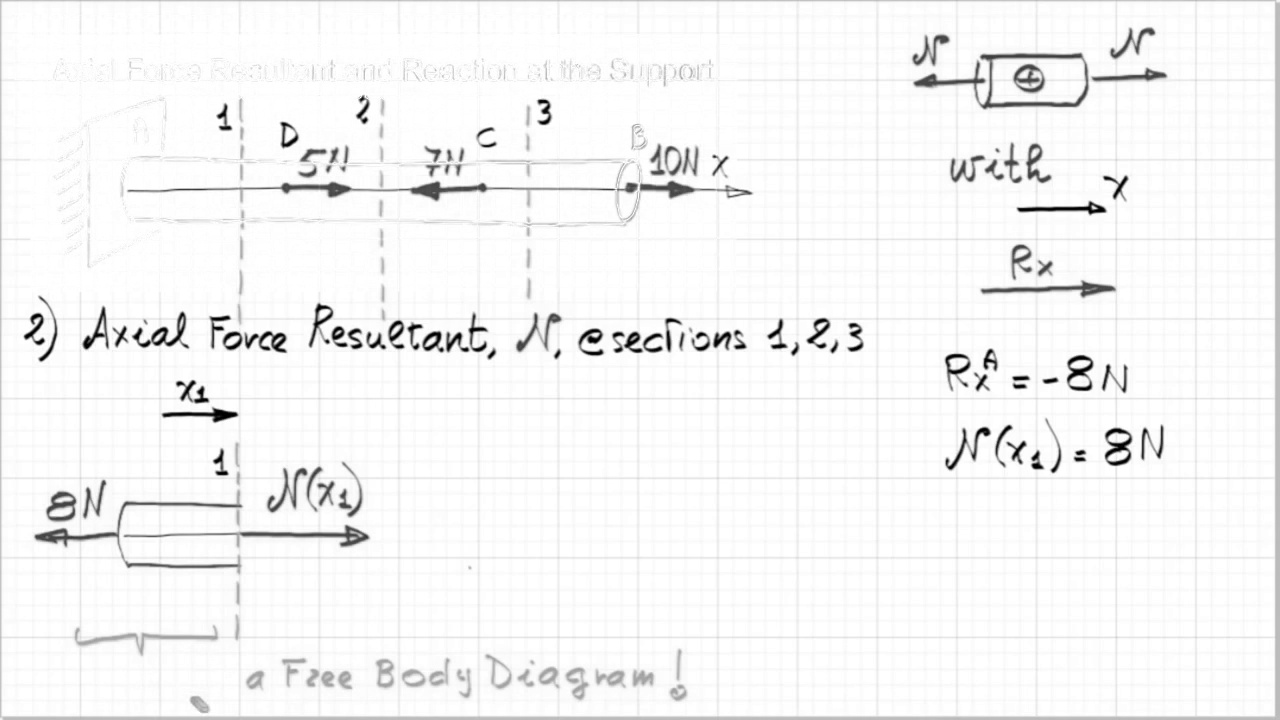 Axial Force Resultant and Reaction at the Support
A 1 D 5N 2 7N C 3 B 10N x
2) Axial Force Resultant, N, @sections 1,2,3
x1
1
8N N(x1)
a Free Body Diagram!
N + N
with x
Rx
RxA = -8N
N(x1) = 8N